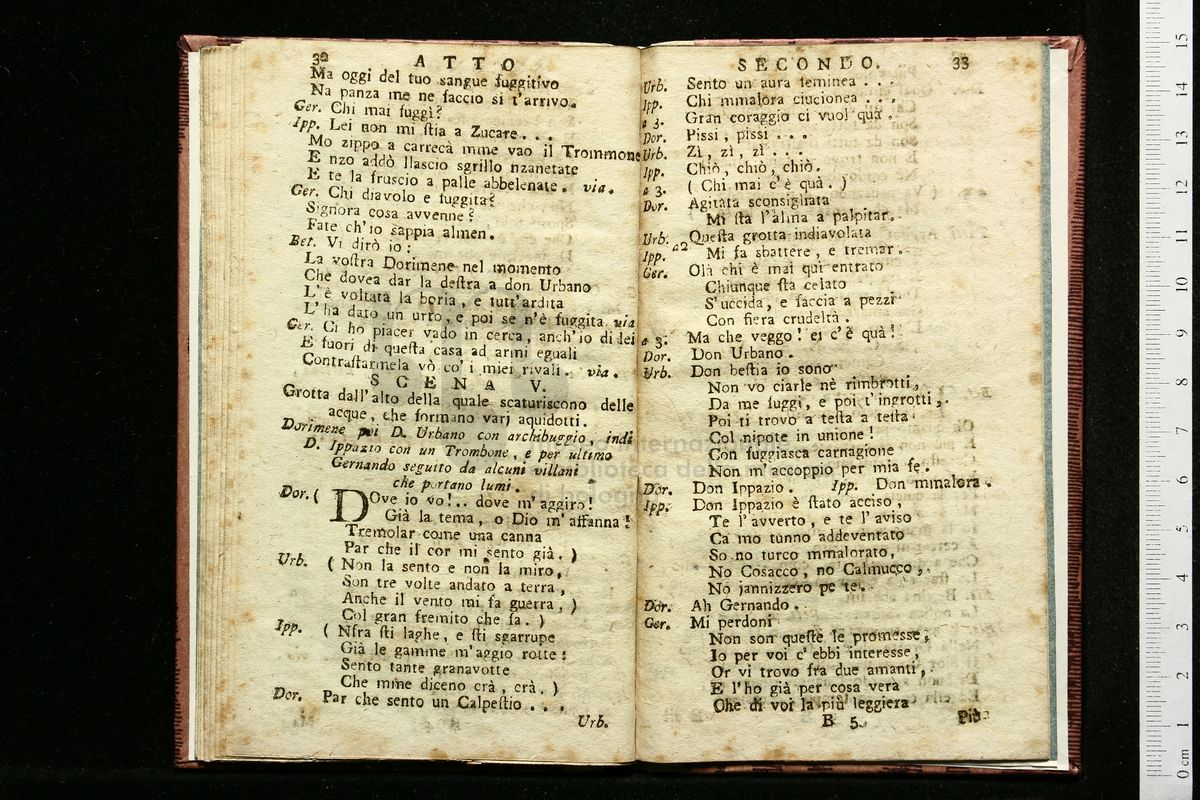 32 ATTO
Ma oggi del tuo sangue fuggitivo
Na panza me ne faccio si t'arrivo.
Ger. Chi mai fuggì?
Ipp. Lei non mi stia a Zucare...
Mo zippo a carrecà mme vao il Trommone
E nzo addò llascio sgrillo nzanetate
E te la fruscio a palle abbelenate. via.
Ger. Chi diavolo e fuggita?
Signora cosa avvenne?
Fate ch'io sappia almen.
Bet. Vi dirò io:
La vostra Dorimene nel momento
Che dovea dar la destra a don Urbano
L'è voltata la boria, e tutt'ardita
L'ha dato un urto, e poi se n'è fuggita via
Ger. Ci ho piacer vado in cerca, anch'io di lei
E fuori di questa casa ad armi eguali
Contrastarmela vò co' i miei rivali. via.
SCENA V.
Grotta dall'alto della quale scaturiscono delle
acque, che formano varj aquidotti.
Dorimene poi D. Urbano con archibuggio, indi
D. Ippazio con un Trombone, e per ultimo
Gernando seguito da alcuni villani
che portano lumi.
Dor. ( DOve io vo!.. dove m'aggiro!
Già la tema, o Dio m'affanna!
Tremolar come una canna
Par che il cor mi sento già. )
Urb. ( Non la sento e non la miro,
Son tre volte andato a terra,
Anche il vento mi fa guerra, )
Col gran fremito che fa. )
Ipp. ( Nfra sti laghe, e sti sgarrupe
Già le gamme m'aggio rotte:
Sento tante granavotte
Che mme diceno crà, crà. )
Dor. Par che sento un Calpestio...
Urb.
SECONDO. 33
Urb. Sento un aura feminea...
Ipp. Chi mmalora ciucionea...
a 3. Gran coraggio ci vuol quà.
Dor. Pissi, pissi...
Urb. Zì, zì, zì...
Ipp. Chiò, chiò, chiò.
a 3. ( Chi mai c'è quà. )
Dor. Agitata sconsigliata
Mi sta l'alma a palpitar.
Urb. Questa grotta indiavolata
Ipp. a2 Mi fa sbattere, e tremar.
Ger. Olà chi è mai qui entrato
Chiunque sta celato
S'uccida, e faccia a pezzi
Con fiera crudeltà.
a 3. Ma che veggo! ei c'è quà!
Dor. Don Urbano.
Urb. Don bestia io sono
Non vo ciarle nè rimbrotti,
Da me fuggi, e poi t'ingrotti,
Poi ti trovo a testa a testa
Col nipote in unione!
Con fuggiasca carnagione
Non m'accoppio per mia fe.
Dor. Don Ippazio. Ipp. Don mmalora.
Ipp. Don Ippazio è stato acciso,
Te l'avverto, e te l'aviso
Ca mo tunno addeventato
So no turco mmalorato,
No Cosacco, no Calmucco,
No jannizzero pe te.
Dor. Ah Gernando.
Ger. Mi perdoni
Non son queste le promesse,
Io per voi c'ebbi interesse,
Or vi trovo fra due amanti,
E l'ho già per cosa vera
Che di voi la più leggiera
B 5 Più